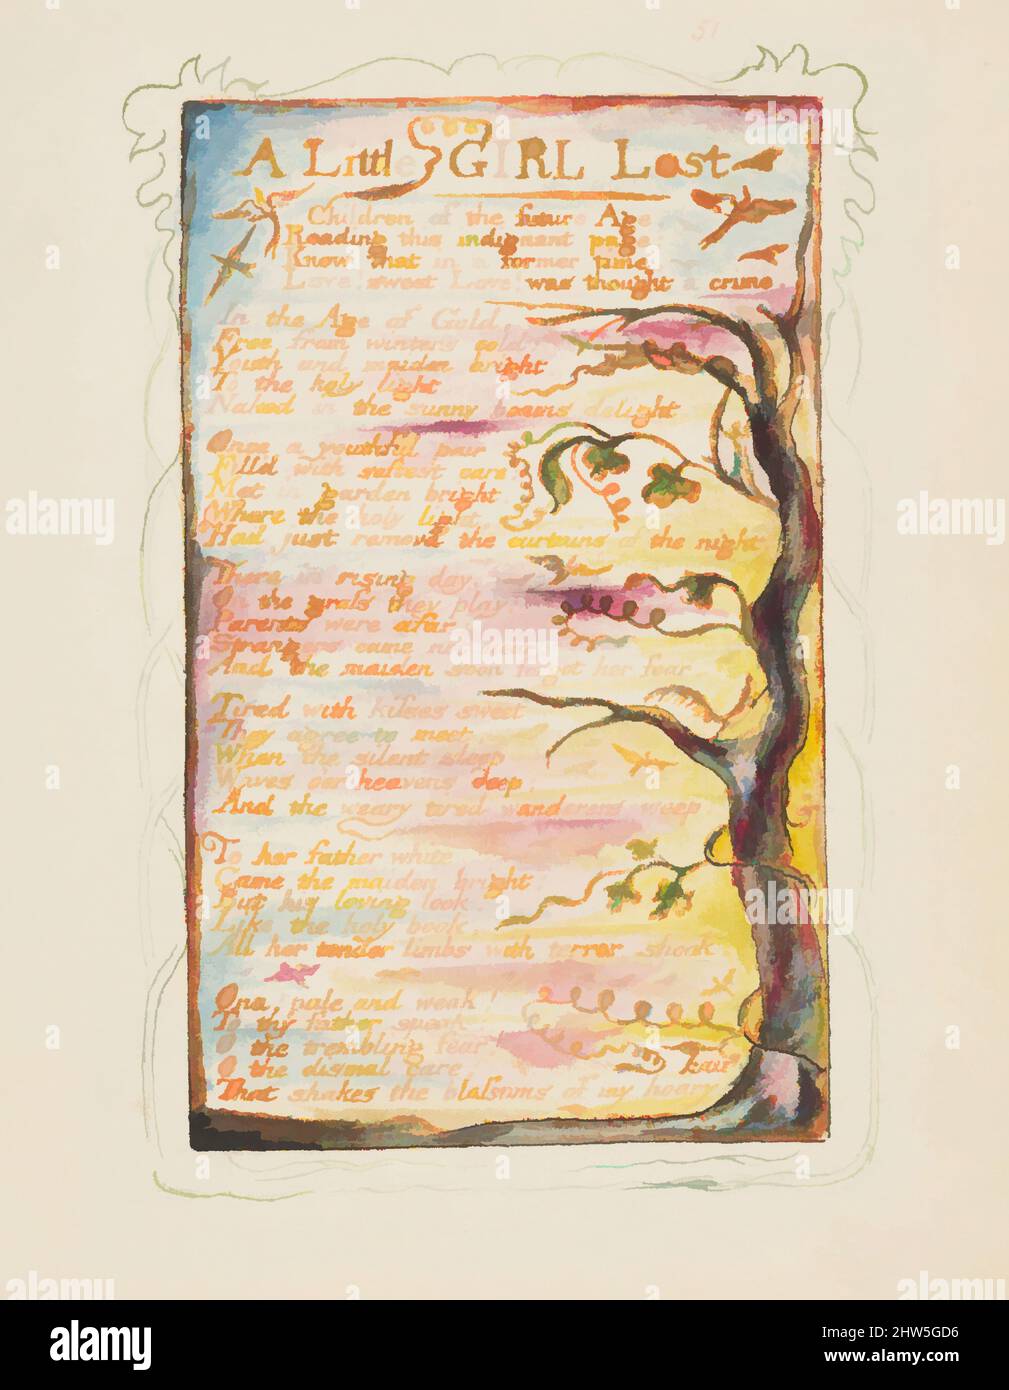 51
A Little GIRL Lost
Children of the future Age
Reading this indignant page
Know that in a former time
Love sweet Love was thought a crime
In the Age of Gold
Free from winters cold
Youth and maiden bright
To the holy light
Naked in the sunny beams delight
Once a youthful pair
Filld with softest care
Met in garden bright
Where the holy light
Had just removd the curtains of the night
There in rising day
On the grass they play
Parents were afar
Strangers came not near
And the maiden soon forgot her fear
Tired with kisses sweet
They agree to meet
When the silent sleep
Waves oer heavens deep
And the weary tired wanderers weep
To her father white
Came the maiden bright
But his loving look
Like the holy book
All her tender limbs with terror shook
Ona, pale and weak
To thy father speak
O the trembling fear
O the dismal care
That shakes the blossoms of my hoary
hair
alamy
Image ID: 2HW5GD6
www.alamy.com